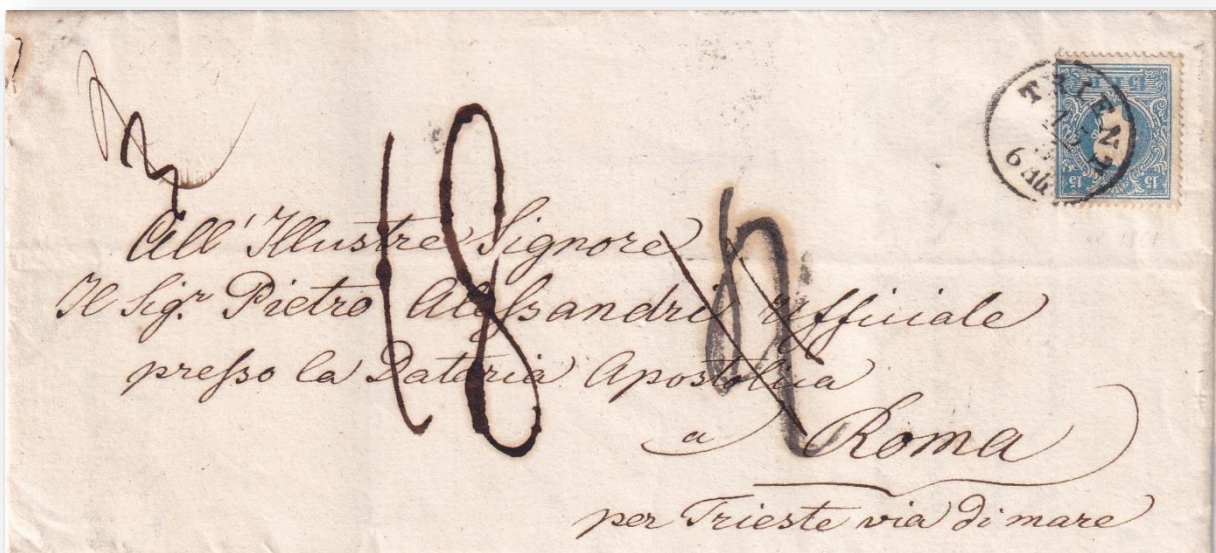 15 15
TRIENT
6 AB.
15 15
18
All' Illustre Signore
Il Sigr. Pietro Alessandri Ufficiale
presso la Dataria Apostolica
a Roma
per Trieste via di mare